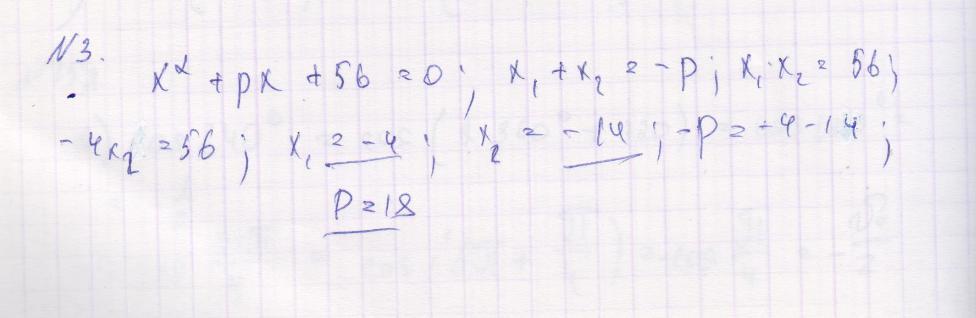 N3.
x² + px + 56 = 0; x₁ + x₂ = -p; x₁·x₂ = 56;
-4x₂ = 56; x₁ = -4; x₂ = -14; -p = -4 - 14;
p = 18